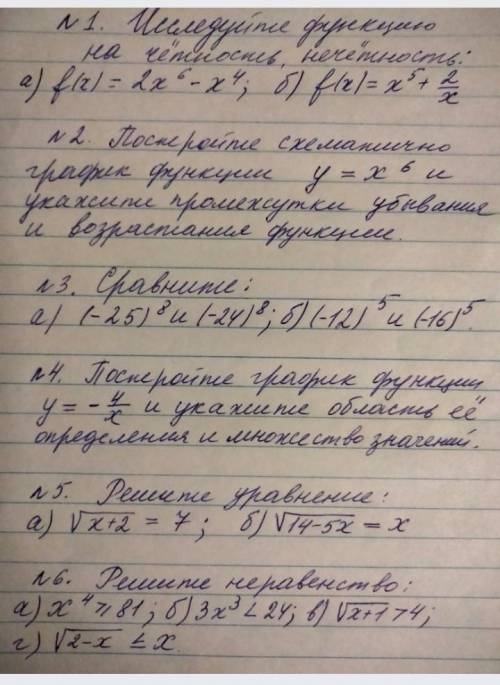 №1. Исследуйте функцию
на чётность, нечётность:
а) f(x) = 2x⁶ - x⁴; б) f(x) = x⁵ + 2/x
№2. Постройте схематично
график функции y = x⁶ и
укажите промежутки убывания
и возрастания функции.
№3. Сравните:
а) (-25)⁸ и (-24)⁸; б) (-12)⁵ и (-16)⁵.
№4. Постройте график функции
y = - 4/x и укажите область её
определения и множество значений.
№5. Решите уравнение:
а) √(x+2) = 7; б) √(14-5x) = x
№6. Решите неравенство:
а) x⁴ ≥ 81; б) 3x³ < 24; в) √(x+1) > 4;
г) √(2-x) ≤ x.